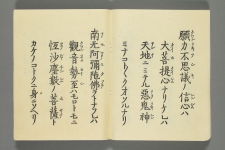 願力不思議ノ信心ハ
大菩提心ナリケレハ
天地ニミテル惡鬼神
ミナコト〱クオソルナリ
南无阿彌陀佛ヲトナフレハ
觀音勢至ハモロトモニ
恆沙塵數ノ菩薩ト
カケノコトクニ身ニソヘリ